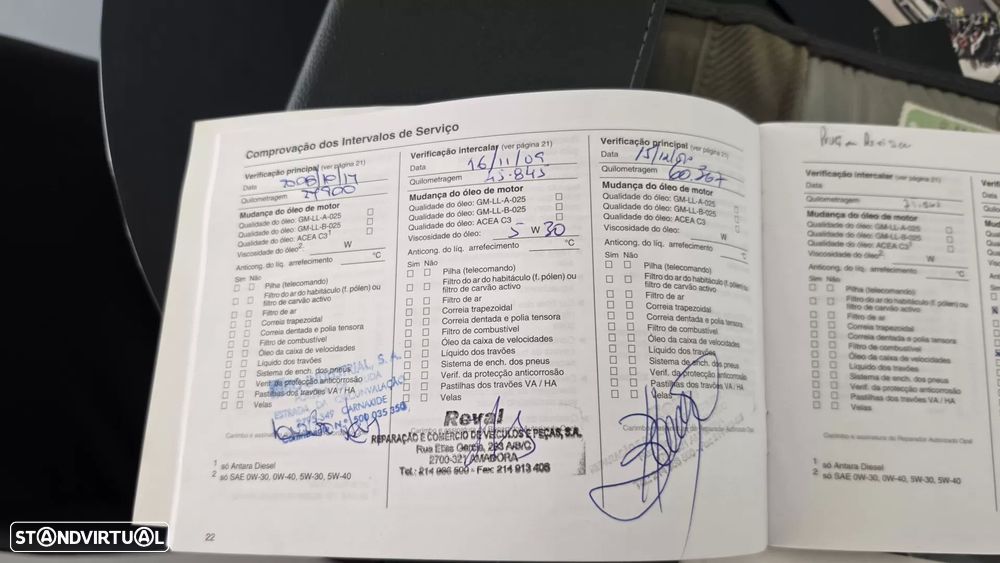 Comprovação dos Intervalos de Serviço
Verificação principal (ver página 21)
Data 2008/10/17
Quilometragem 29900
Mudança do óleo de motor
Qualidade do óleo: GM-LL-A-025
Qualidade do óleo: GM-LL-B-025
Qualidade do óleo: ACEA C3¹
Viscosidade do óleo²: W
Anticong. do líq. arrefecimento °C
Sim Não
Pilha (telecomando)
Filtro do ar do habitáculo (f. pólen) ou
filtro de carvão activo
Filtro de ar
Correia trapezoidal
Correia dentada e polia tensora
Filtro de combustível
Óleo da caixa de velocidades
Líquido dos travões
Sistema de ench. dos pneus
Verif. da protecção anticorrosão
Pastilhas dos travões VA / HA
Velas
ESTRADA DA CIRCUNVALAÇÃO
CARNAXIDE
500 035 350
Carimbo e assinatura
¹ só Antara Diesel
² só SAE 0W-30, 0W-40, 5W-30, 5W-40
22
Verificação intercalar (ver página 21)
Data 16/11/09
Quilometragem 45.845
Mudança do óleo de motor
Qualidade do óleo: GM-LL-A-025
Qualidade do óleo: GM-LL-B-025
Qualidade do óleo: ACEA C3
Viscosidade do óleo: 5 W 30
Anticong. do líq. arrefecimento °C
Sim Não
Pilha (telecomando)
Filtro do ar do habitáculo (f. pólen) ou
filtro de carvão activo
Filtro de ar
Correia trapezoidal
Correia dentada e polia tensora
Filtro de combustível
Óleo da caixa de velocidades
Líquido dos travões
Sistema de ench. dos pneus
Verif. da protecção anticorrosão
Pastilhas dos travões VA / HA
Velas
Reval
REPARAÇÃO E COMÉRCIO DE VEÍCULOS E PEÇAS, S.A.
Rua Elias Garcia, 293 A/B/C
2700-321 AMADORA
Tel.: 214 986 500 - Fax: 214 913 406
Verificação principal (ver página 21)
Data
Quilometragem 60.367
Mudança do óleo de motor
Qualidade do óleo: GM-LL-A-025
Qualidade do óleo: GM-LL-B-025
Qualidade do óleo: ACEA C3
Viscosidade do óleo: W
Anticong. do líq. arrefecimento °C
Sim Não
Pilha (telecomando)
Filtro do ar do habitáculo (f. pólen) ou
filtro de carvão activo
Filtro de ar
Correia trapezoidal
Correia dentada e polia tensora
Filtro de combustível
Óleo da caixa de velocidades
Líquido dos travões
Sistema de ench. dos pneus
Verif. da protecção anticorrosão
Pastilhas dos travões VA / HA
Velas
Verificação intercalar (ver página 21)
Data
Quilometragem
Mudança do óleo de motor
Qualidade do óleo: GM-LL-A-025
Qualidade do óleo: GM-LL-B-025
Qualidade do óleo: ACEA C3¹
Viscosidade do óleo²: W
Anticong. do líq. arrefecimento °C
Sim Não
Pilha (telecomando)
Filtro do ar do habitáculo (f. pólen) ou
filtro de carvão activo
Filtro de ar
Correia trapezoidal
Correia dentada e polia tensora
Filtro de combustível
Óleo da caixa de velocidades
Líquido dos travões
Sistema de ench. dos pneus
Verif. da protecção anticorrosão
Pastilhas dos travões VA / HA
Velas
Carimbo e assinatura do Reparador Autorizado Opel
¹ só Antara Diesel
² só SAE 0W-30, 0W-40, 5W-30, 5W-40
STANDVIRTUAL